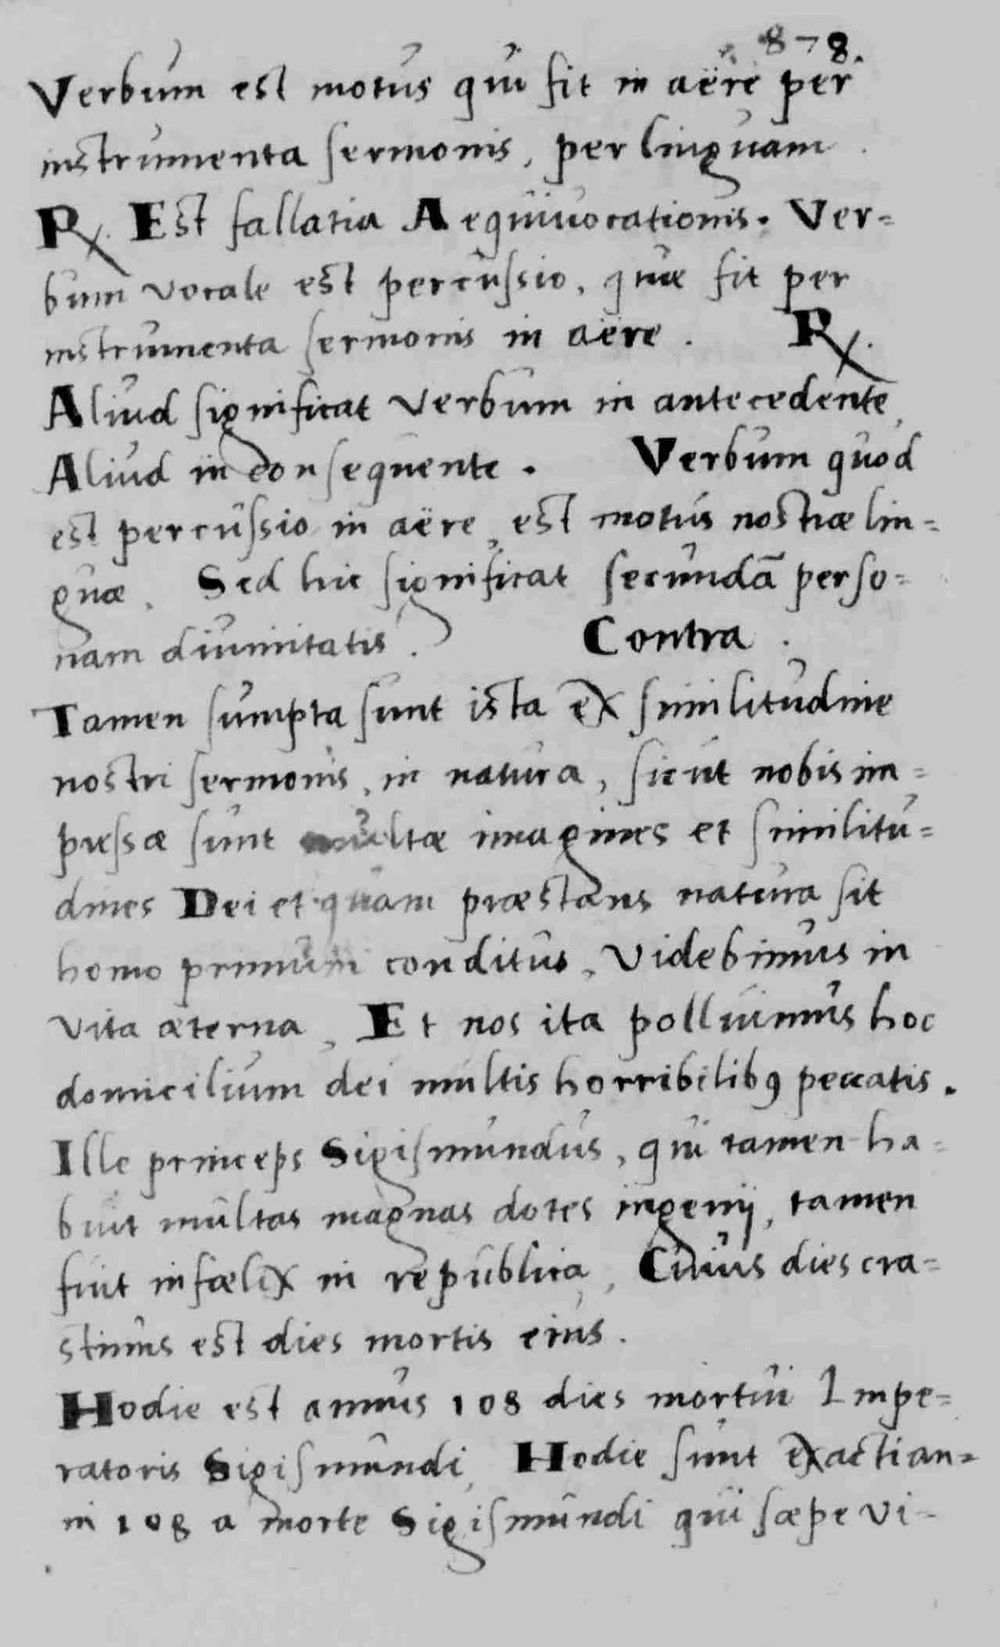 878.
Verbum est motus qui fit in aëre per
instrumenta sermonis, per linguam
℞. Est fallatia Aequiuocationis. Ver=
bum vocale est percussio, quæ fit per
instrumenta sermonis in aëre. ℞.
Aliud significat verbum in antecedente,
Aliud in consequente. Verbum quod
est percussio in aëre, est motus nostræ lin=
guæ. Sed hic significat secundā perso=
nam diuinitatis. Contra.
Tamen sumpta sunt ista ex similitudine
nostri sermonis, in natura, sicut nobis im=
pressæ sunt multæ imagines et similitu=
dines Dei et quam præstans natura sit
homo primum conditus, Videbimus in
vita æterna, Et nos ita polluimus hoc
domicilium dei multis horribilibꝰ peccatis.
Ille princeps Sigismundus, qui tamen ha=
buit multas magnas dotes ingenij, tamen
fuit infœlix in republica, Cuius dies cra=
stinus est dies mortis eius.
Hodie est annus 108 dies mortui Impe=
ratoris Sigismundi, Hodie sunt exacti an=
ni 108 a morte Sigismundi qui sæpe vi=